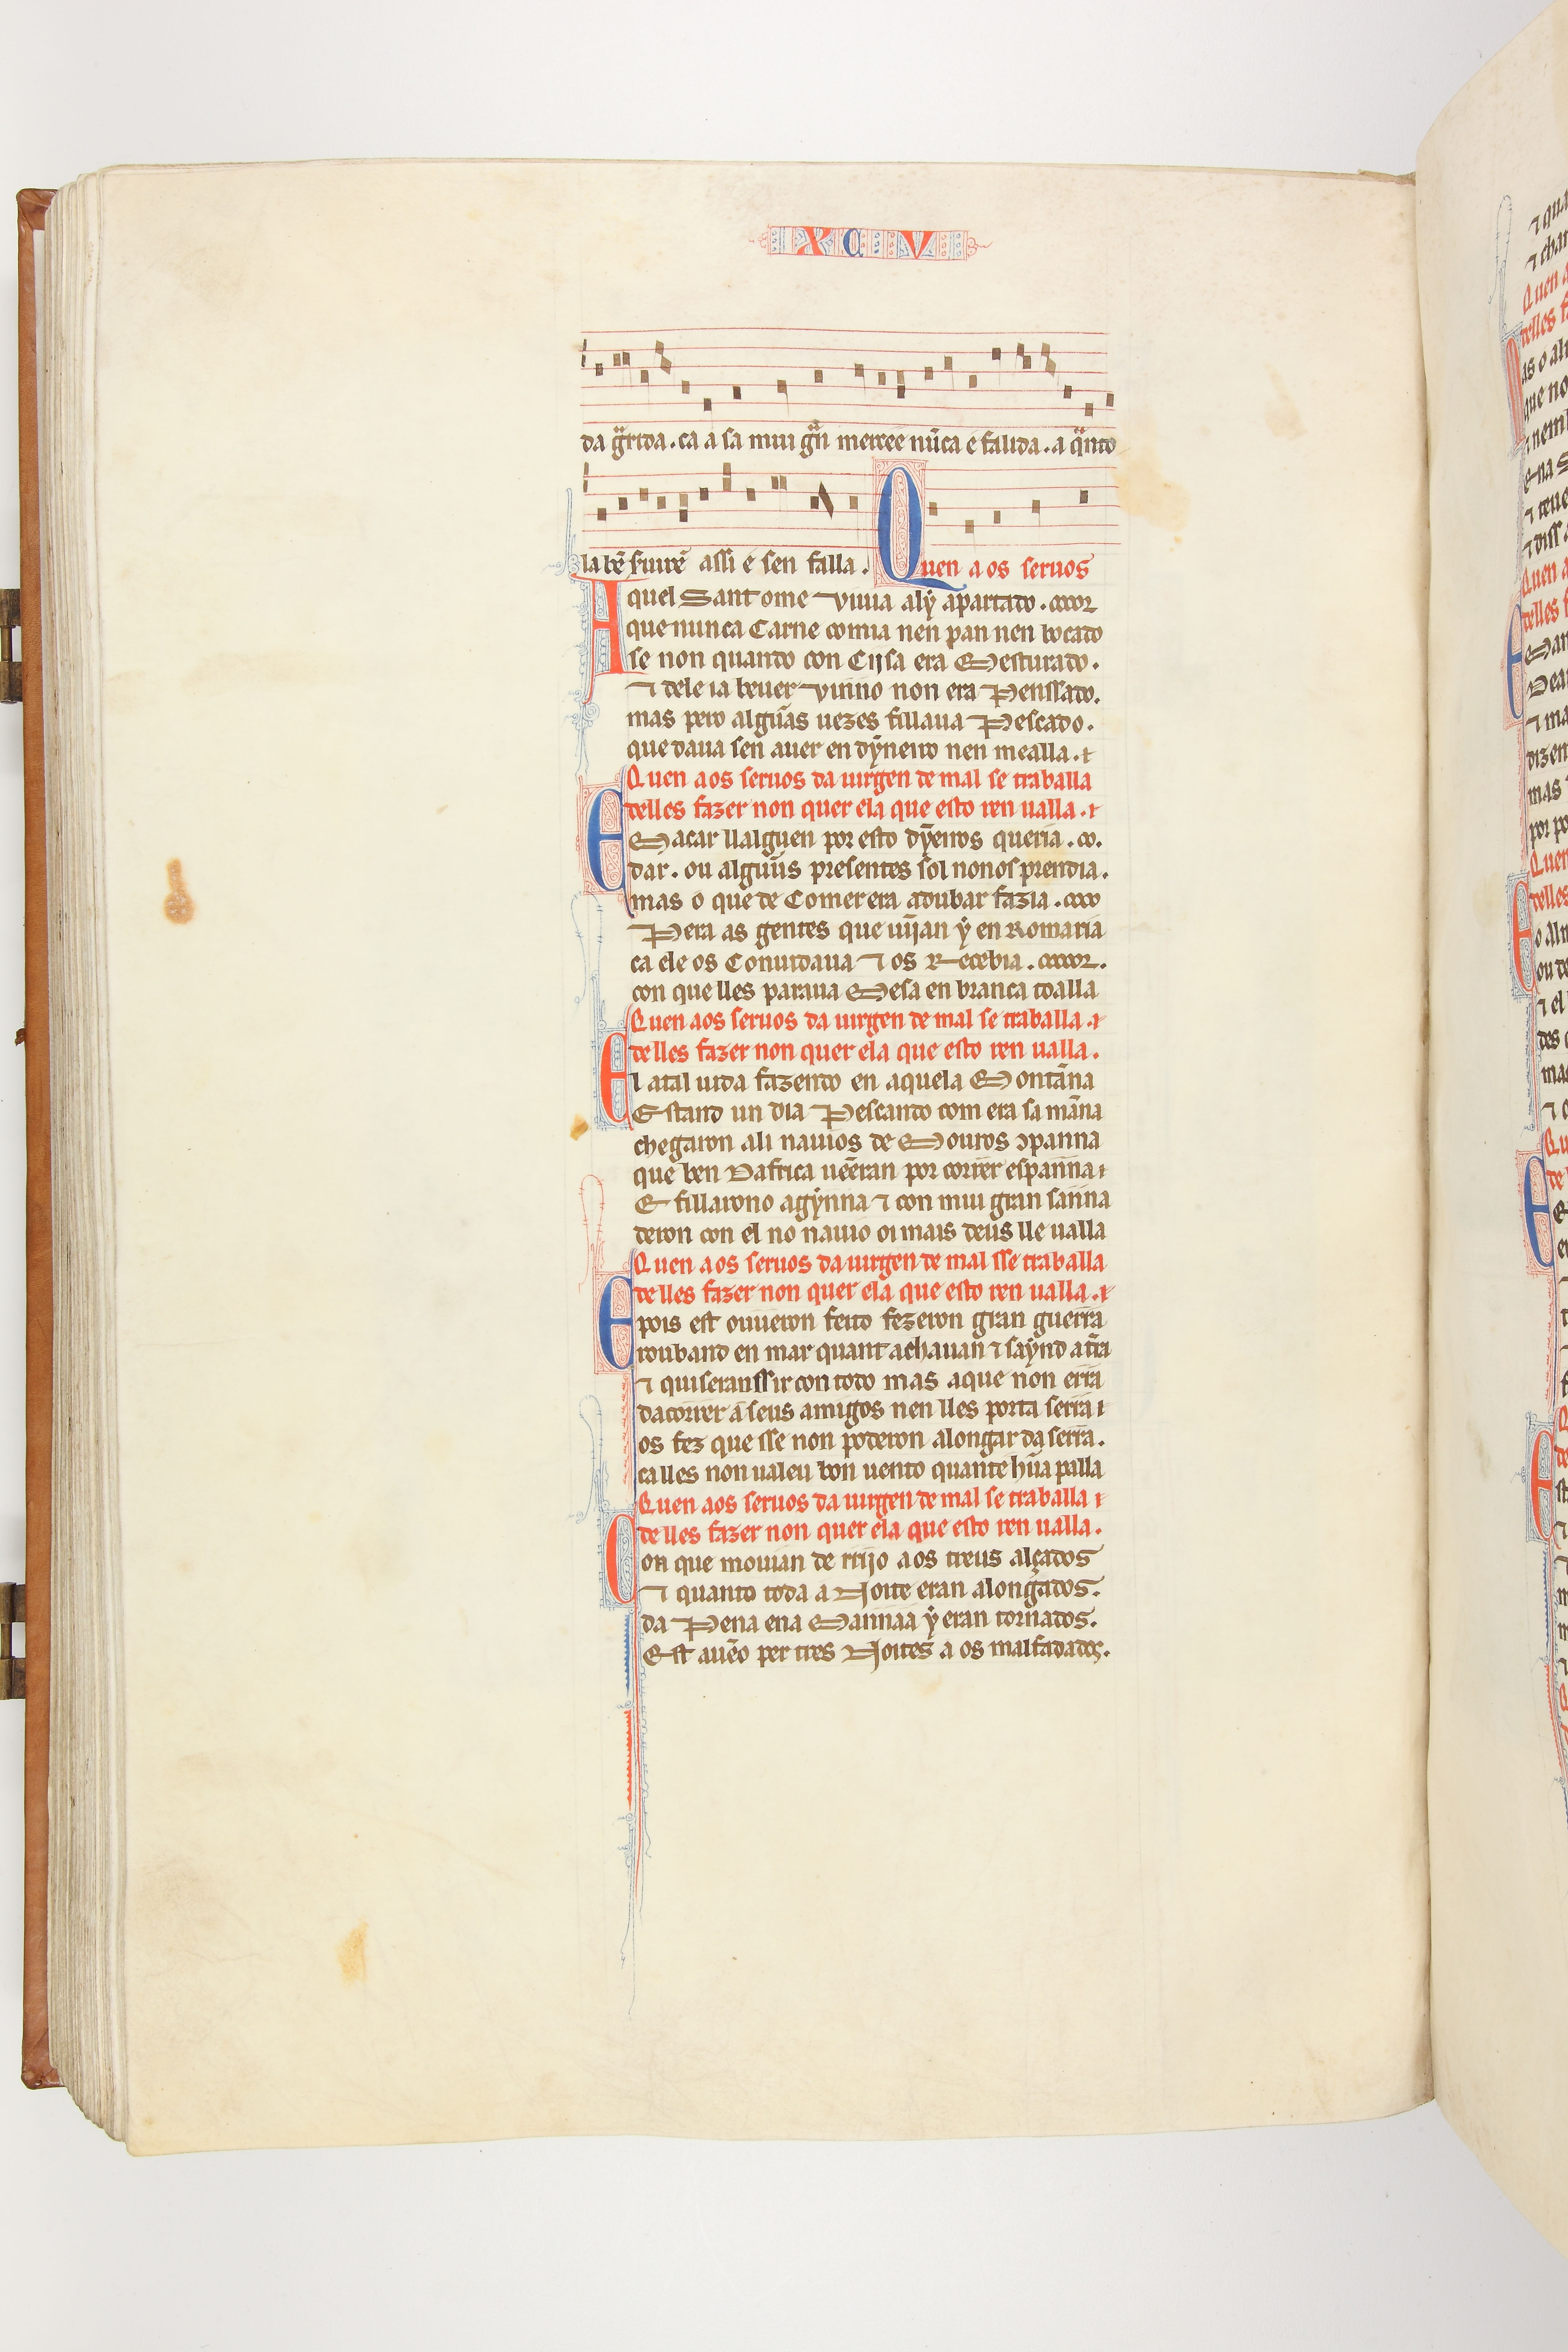 XCV
da g̃rida . ca a sa mui gñ mercee nũca é falida . a q̃nto
la bẽ seruirẽ assi é sen falla . Quen a os seruos
Aquel Sant ome viuia alý apartado .
que nunca Carne comia nen pan nen bocado
se non quando con Cijsa era Mesturado .
⁊ dele ia beuer vinno non era Penssado .
mas pero algũas uezes fillaua Pescado .
que daua sen auer en dỹneiro nen mealla . ⁊
Quen a os seruos da uirgen de mal se traballa
delles fazer non quer ela que esto ren ualla . ⁊
E Sacar llalguen por esto dỹeiros queria .
dar . ou algũus presentes sol nonos prendia .
mas o que de Comer era adubar fazia .
Pera as gentes que uijan ý en Romaria
ca ele os Conuidaua ⁊ os Recebia .
con que lles paraua Mesa en branca toalla
Quen aos seruos da uirgen de mal se traballa . ⁊
delles fazer non quer ela que esto ren ualla .
El atal uida fazendo en aquela Montãna
Estand un dia Pescando com era sa mãna
chegaron ali nauios de Mouros ɔpanna
que ben Dafrica uẽeran por correr espanna ⁊
E fillarono agỹnna ⁊ con mui gran sanna
deron con el no nauio oi mais deus lle ualla
Quen a os seruos da uirgen de mal sse traballa
delles fazer non quer ela que esto ren ualla . ⁊
E pois est ouueron feito fezeron gran guerra
rouband en mar quant achauan ⁊ saýnd a t̃ra
⁊ quiseranssir con todo mas aque non erra
dacorrer a seus amigos nen lles porta serra ⁊
os fez que sse non poderon alongar da serra .
ca lles non ualeu bon uento quante hũa palla
Quen aos seruos da uirgen de mal se traballa ⁊
delles fazer non quer ela que esto ren ualla .
Con que mouian de rrijo a os treus alçados
⁊ quanto toda a Noite eran alongados .
da Pena ena Mannaa ý eran tornados .
Est auẽo per tres Noites a os malfadados .